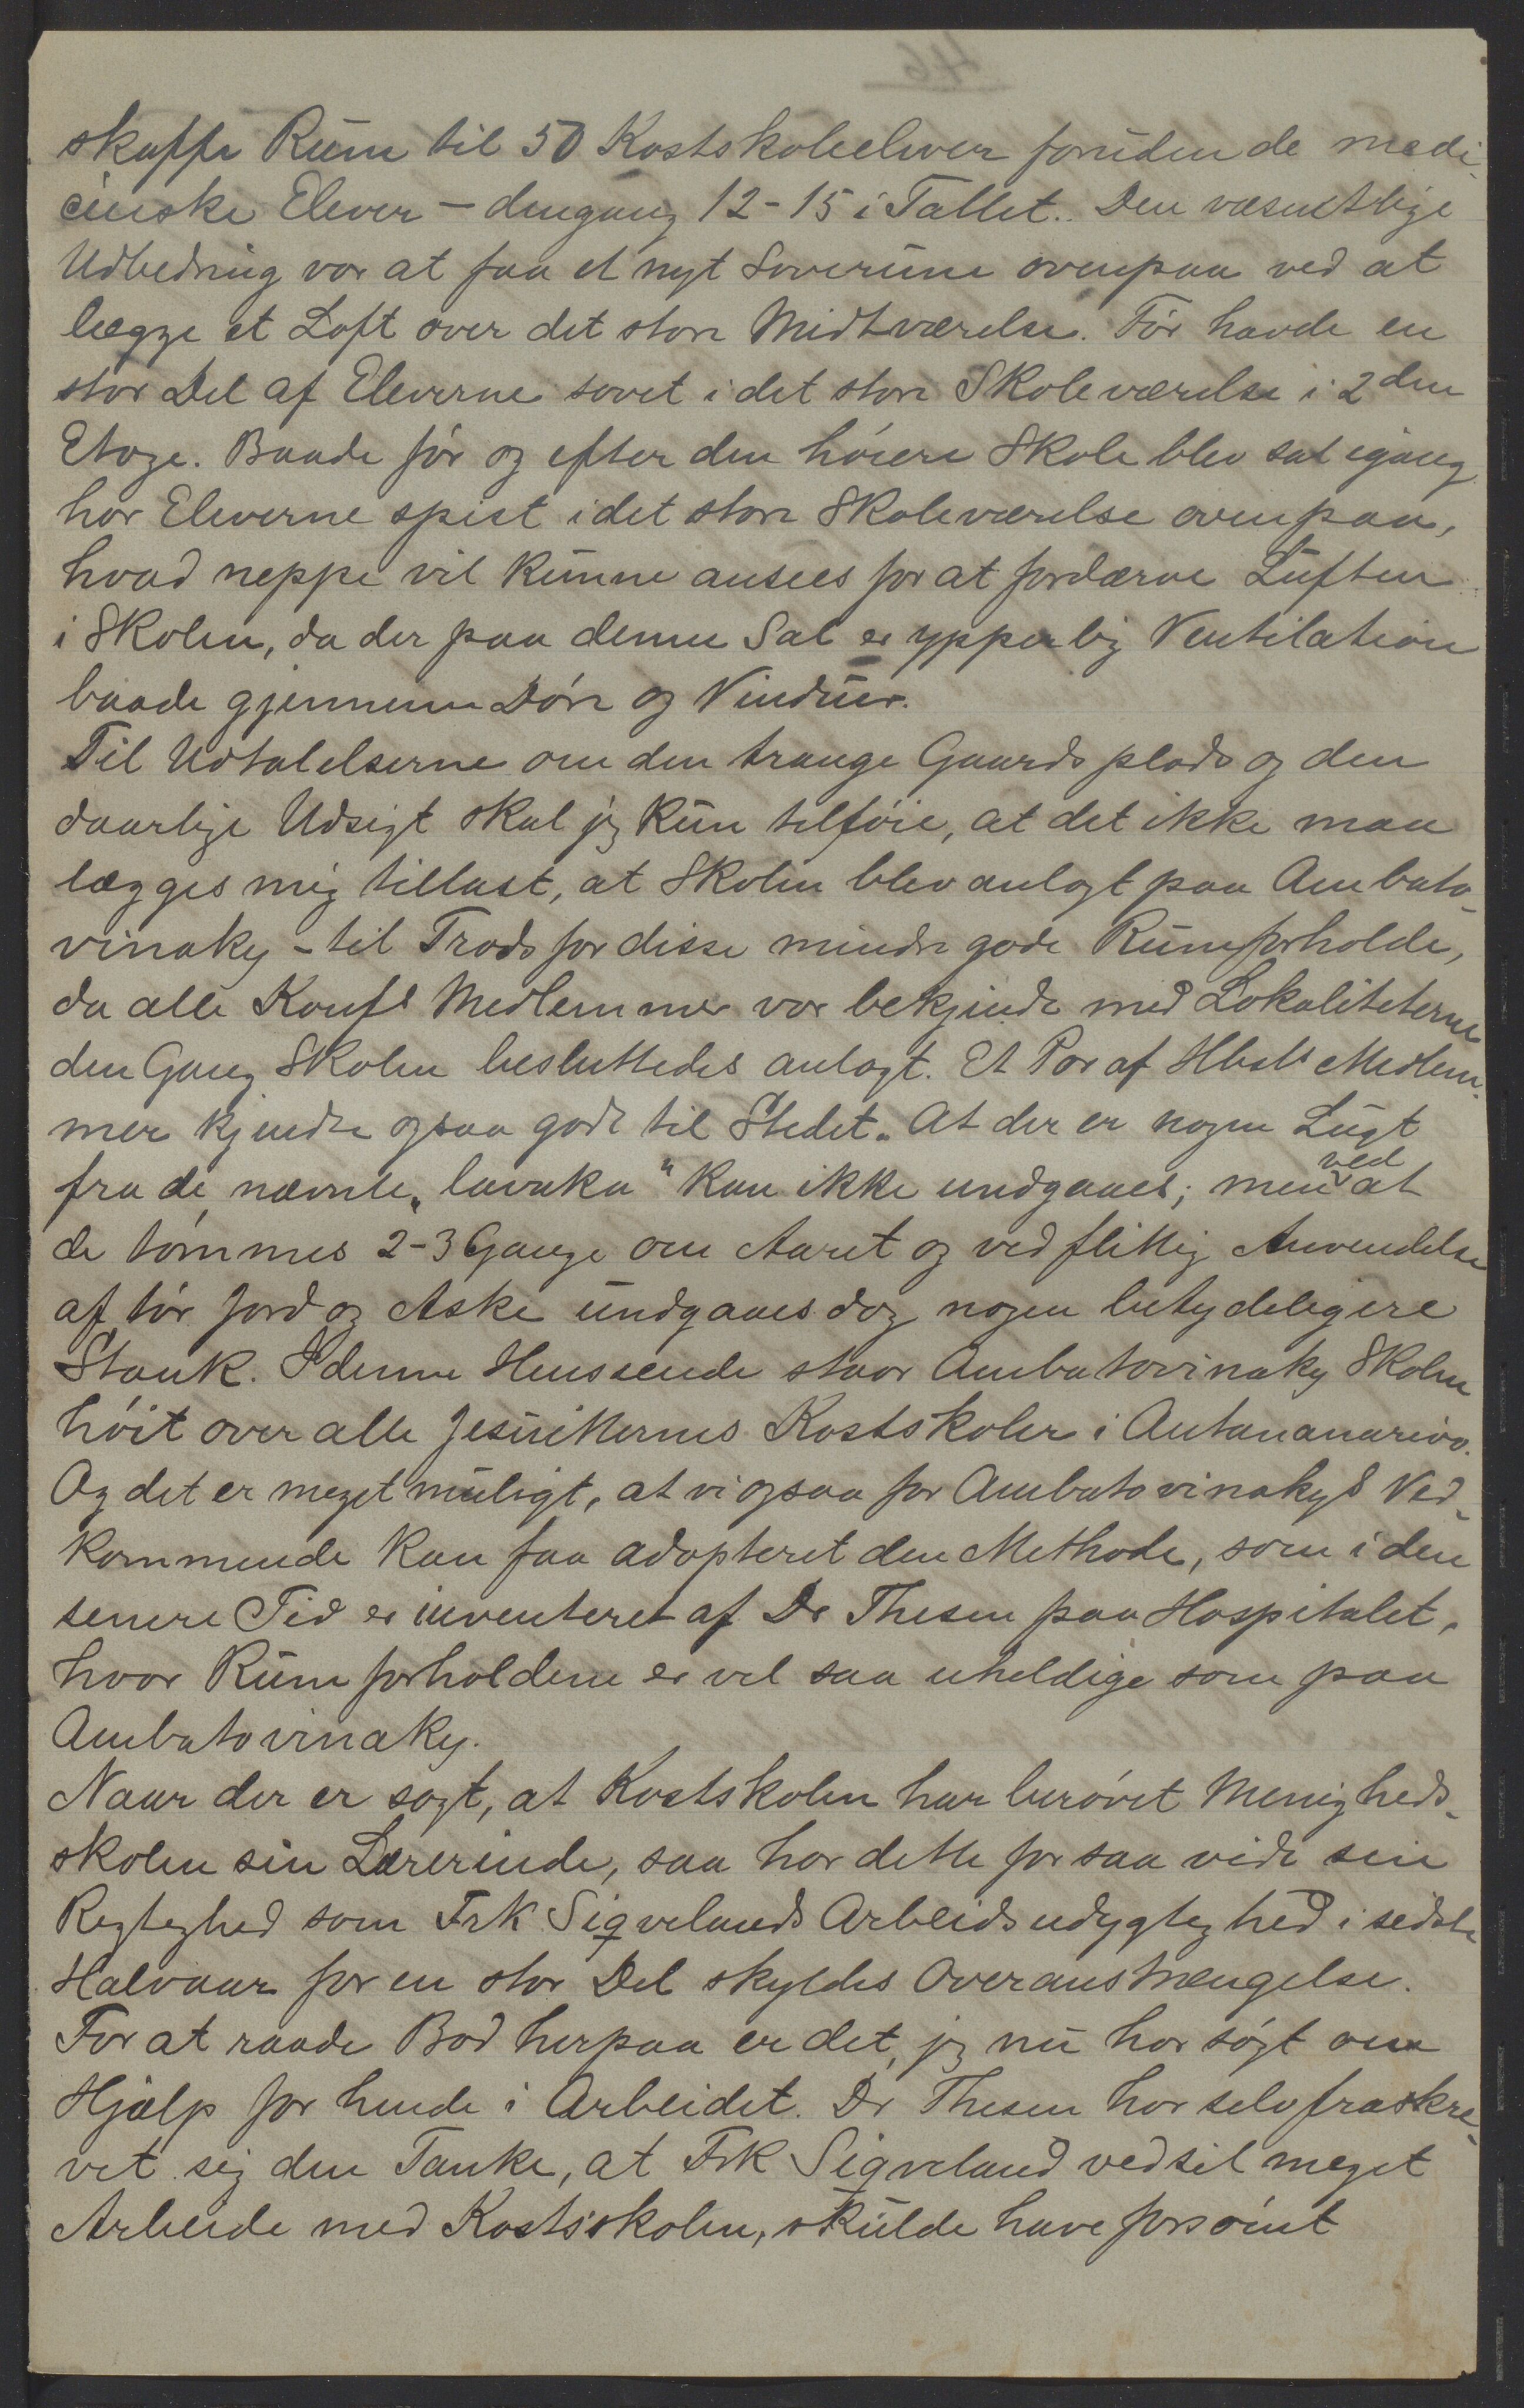 skaffe Rum til 50 Kostskoleelever foruden de medi-
cinske Elever – dengang 12-15 i Tallet. Den væsentlige
Udbedring var at faa et nyt Soverum ovenpaa ved at
lægge et Loft over det store Midtværelse. Før havde en
stor Del af Eleverne sovet i det store Skoleværelse i 2den
Etage. Baade før og efter den høiere Skole blev sat igang
har Eleverne spist i det store Skoleværelse ovenpaa,
hvad neppe vil kunne ansees for at fordærve Luften
i Skolen, da der paa denne Sal er ypperlig Ventilation
baade gjennem Døre og Vinduer.
Til Udtalelserne om den trange Gaardsplads og den
daarlige Udsigt skal jeg kun tilføie, at det ikke maa
lægges mig tillast, at Skolen blev anlagt paa Ambato-
vinaky – til Trods for disse mindre gode Rumforholde,
da alle Konfs Medlemmer var bekjendt med Lokaliteterne
den Gang Skolen besluttedes anlagt. Et Par af Hbst's Medlem-
mer kjendte ogsaa godt til Stedet. At der er nogen Lugt
fra de nævnte „lavaka" kan ikke undgaaes; men ved at
de tømmes 2-3 Gange om Aaret og ved flittig Anvendelse
af tør Jord og Aske undgaaes dog nogen betydeligere
Stank. I denne Henseende staar Ambatovinaky Skolen
høit over alle Jesuitternes Kostskoler i Antananarivo.
Og det er meget muligt, at vi ogsaa for Ambatovinakys Ved-
kommende kan faa adopteret den Methode, som i den
senere Tid er inventeret af Dr Thesen paa Hospitalet,
hvor Rumforholdene er vel saa uheldige som paa
Ambatovinaky.
Naar der er sagt, at Kostskolen har berøvet Menigheds-
skolen sin Lærerinde, saa har dette for saa vidt sin
Rigtighed som Frk Siqvelands Arbeidsudygtighed i sidste
Halvaar for en stor Del skyldes Overanstrængelse.
For at raade Bod herpaa er det, jeg nu har søgt om
Hjælp for hende i Arbeidet. Dr Thesen har selv fraskre-
vet sig den Tanke, at Frk Siqveland ved sit meget
Arbeide med Kostskolen, skulde have forsømt